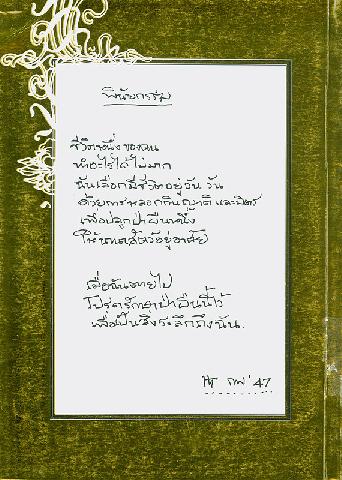 พินัยกรรม
ชีวิตหนึ่งของฉัน
ทำอะไรได้ไม่มาก
ฉันเลือกมีชีวิตอยู่วัน วัน
ด้วยการหลอกกินญาติ และมิตร
เพื่อปลูกป่าผืนหนึ่ง
ให้นกสัตว์อยู่อาศัย
เมื่อฉันตายไป
โปรดรักษาป่าผืนนี้ไว้
เพื่อเป็นสิ่งระลึกถึงฉัน.
'47